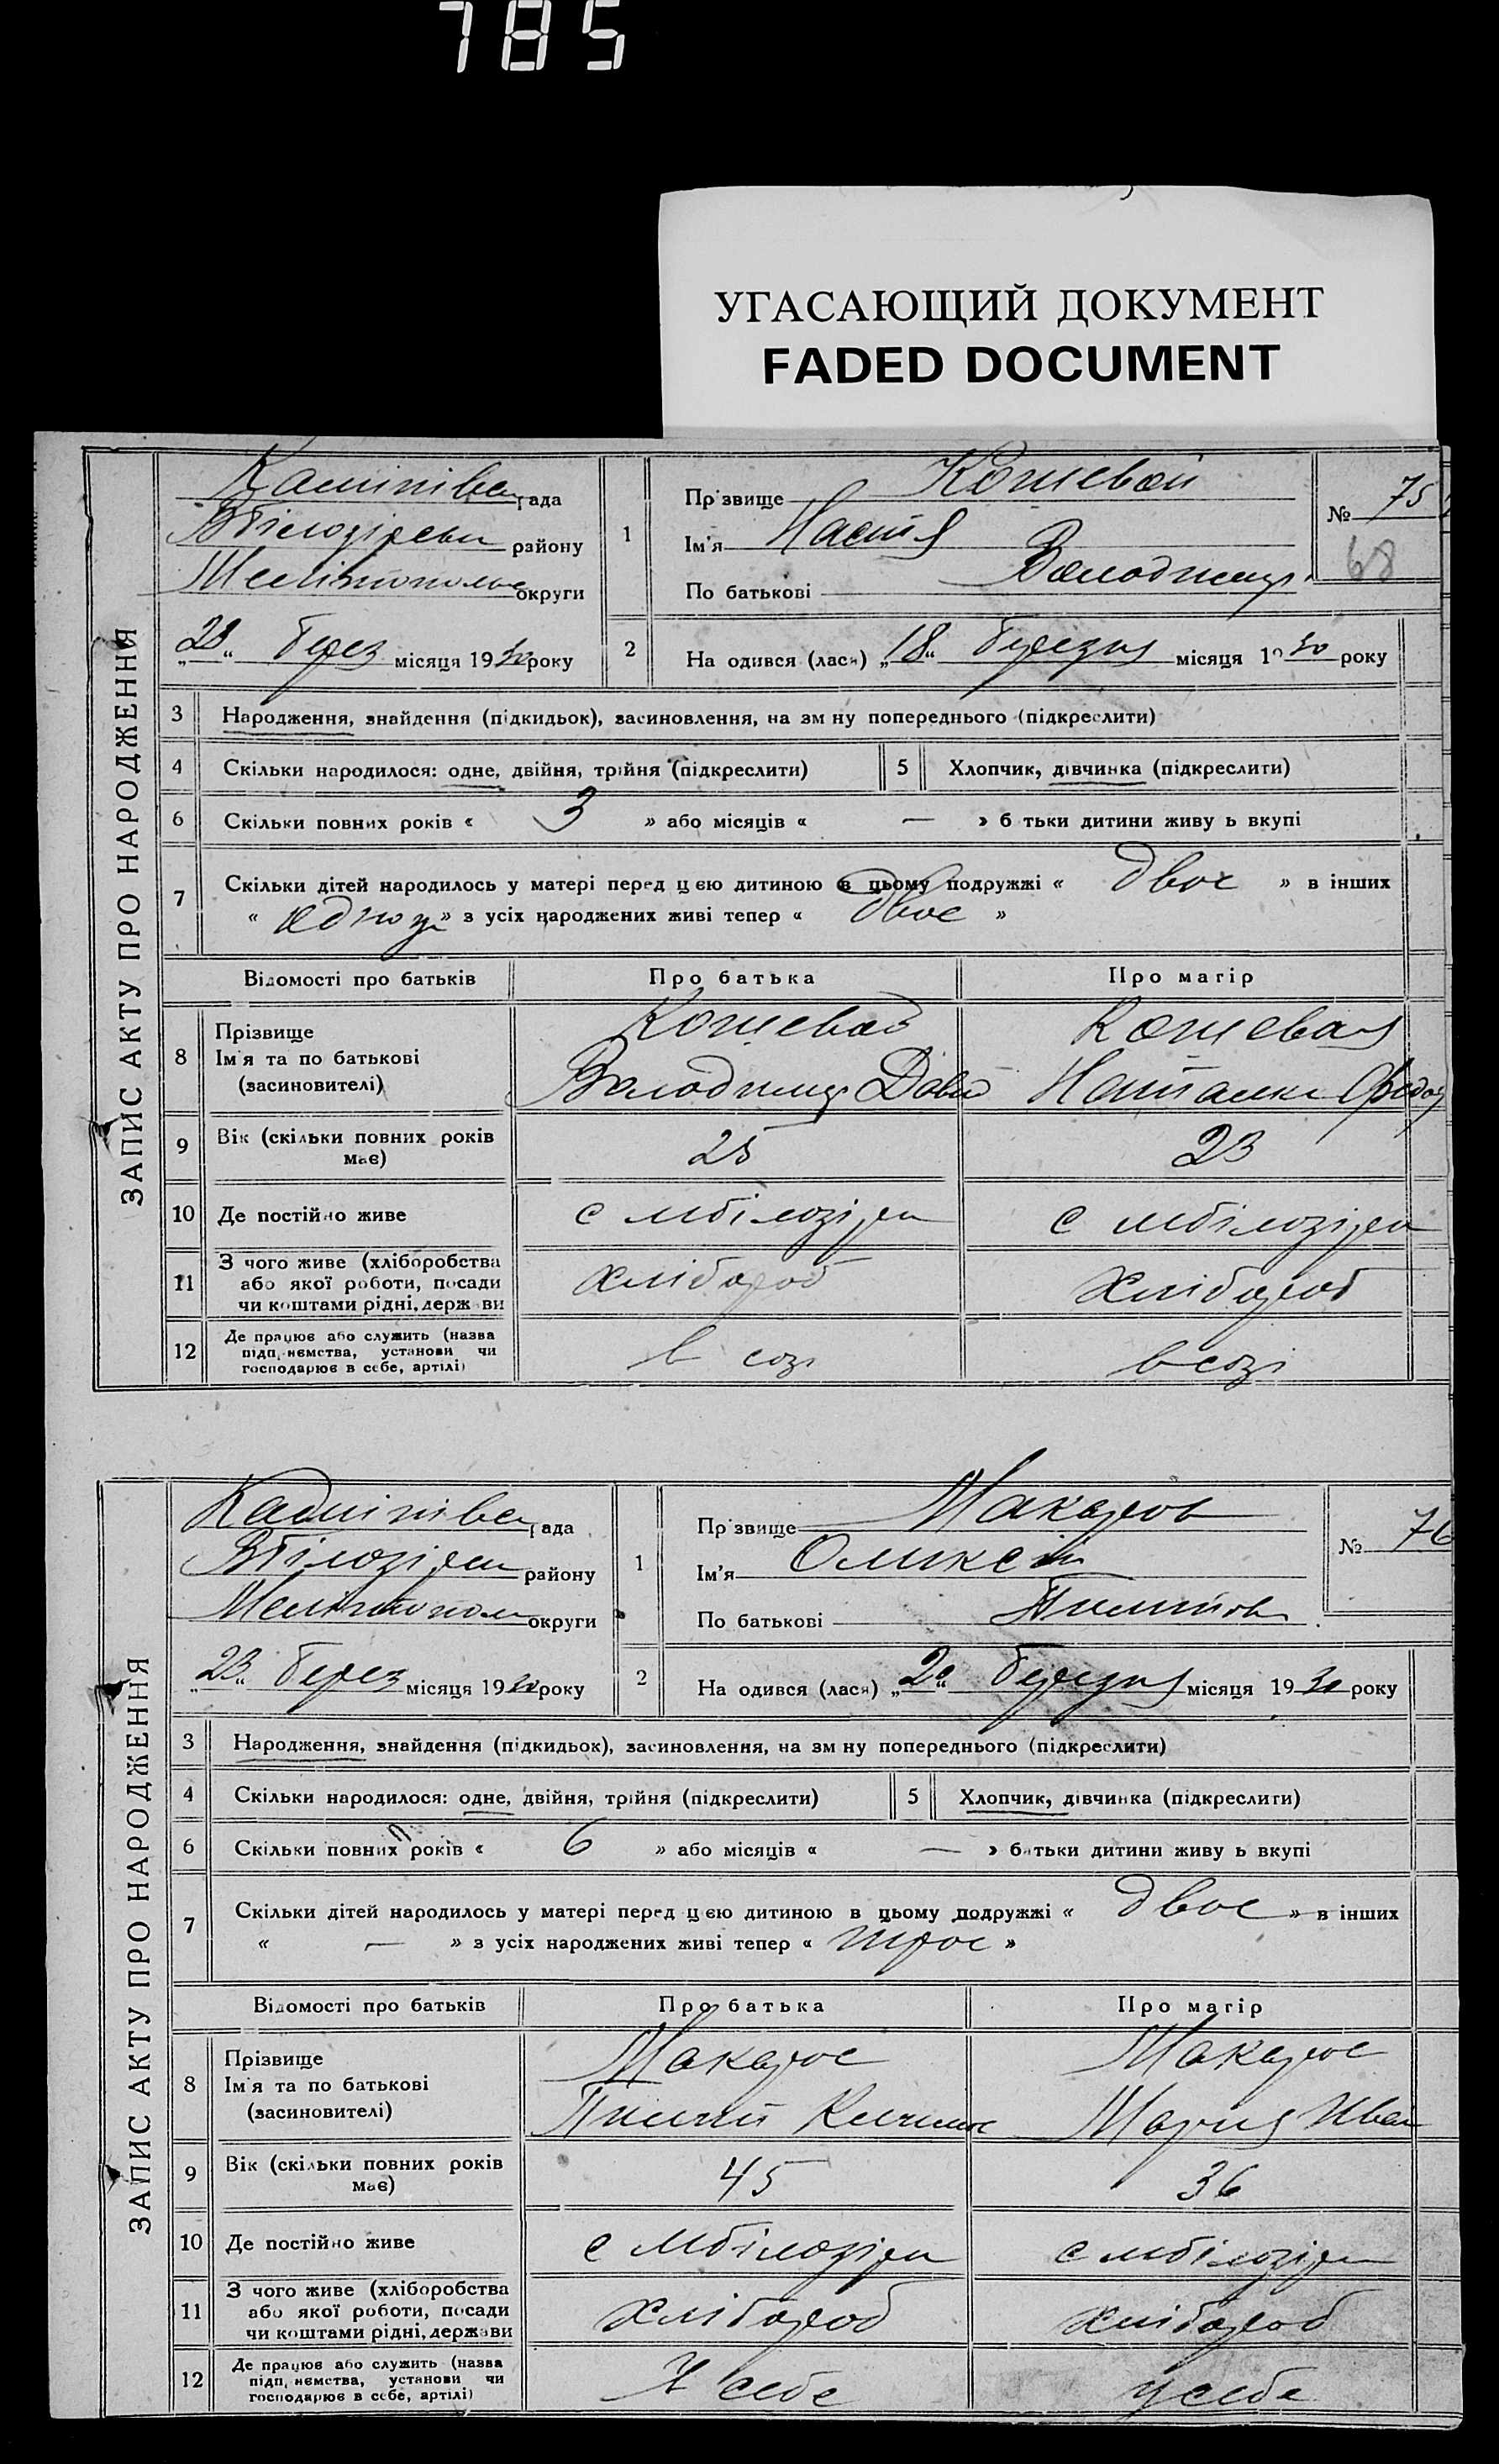 785
УГАСАЮЩИЙ ДОКУМЕНТ
FADED DOCUMENT
ЗАПИС АКТУ ПРО НАРОДЖЕННЯ
рада
району
Мелітополь округи
„23“ берез місяця 1930 року
1
Прізвище Кошевой
Ім'я Настя
По батькові Володимир
№ 75
68
2 На одився (лася) „18“ березня місяця 1930 року
3 Народження, знайдення (підкидьок), засиновлення, на зм ну попереднього (підкреслити)
4 Скільки народилося: одне, двійня, трійня (підкреслити) 5 Хлопчик, дівчинка (підкреслити)
6 Скільки повних років « 3 » або місяців « — » б тьки дитини живу ь вкупі
7 Скільки дітей народилось у матері перед цєю дитиною в цьому подружжі « двоє » в інших
« одноу » з усіх народжених живі тепер « двоє »
Відомості про батьків Про батька Про матір
8 Прізвище Кошевой Кошевая
Ім'я та по батькові
(засиновителі) Володимир Давид Наталка Федор
9 Вік (скільки повних років має) 25 23
10 Де постійно живе с мбілозірка с мбілозірка
11 З чого живе (хліборобства
або якої роботи, посади
чи коштами рідні, держави хлібороб хлібороб
12 Де працює або служить (назва
підп,иємства, установи чи
господарює в себе, артілі) в созі в созі
ЗАПИС АКТУ ПРО НАРОДЖЕННЯ
рада
району
Мелітополь округи
„23“ берез місяця 1930 року
1
Прізвище Макаров
Ім'я Оликсій
По батькові Пилипов
№ 76
2 На одився (лася) „20“ березня місяця 1930 року
3 Народження, знайдення (підкидьок), засиновлення, на зм ну попереднього (підкреслити)
4 Скільки народилося: одне, двійня, трійня (підкреслити) 5 Хлопчик, дівчинка (підкреслити)
6 Скільки повних років « 6 » або місяців « — » батьки дитини живу ь вкупі
7 Скільки дітей народилось у матері перед цєю дитиною в цьому подружжі « двоє » в інших
« — » з усіх народжених живі тепер « троє »
Відомості про батьків Про батька Про матір
8 Прізвище Макаров Макаров
Ім'я та по батькові
(засиновителі) Пилип Мария Иван
9 Вік (скільки повних років має) 45 36
10 Де постійно живе с мбілозірка с мбілозірка
11 З чого живе (хліборобства
або якої роботи, посади
чи коштами рідні, держави хлібороб хлібороб
12 Де працює або служить (назва
підп,иємства, установи чи
господарює в себе, артілі) У себе у себе